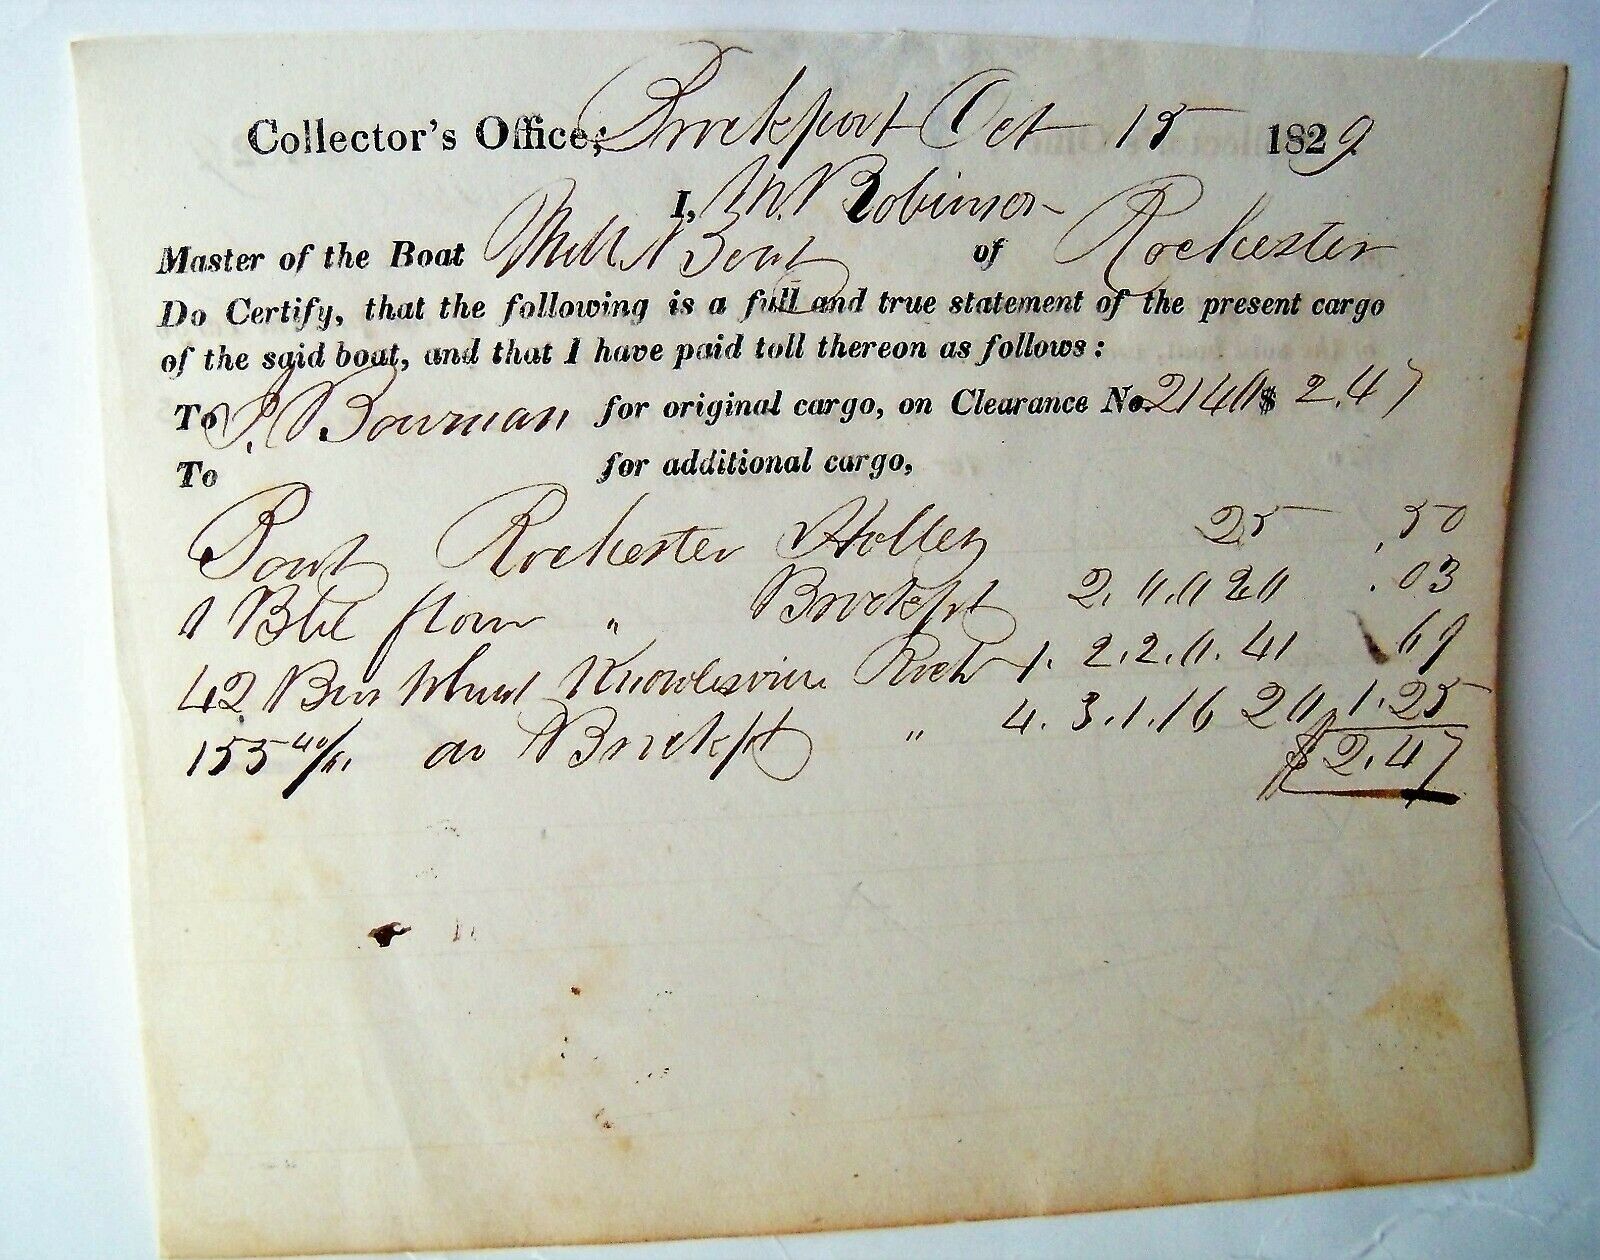 Collector's Office; Brockport Oct 15 1829
I, W. Robinson
Master of the Boat Mill Boat of Rochester
Do Certify, that the following is a full and true statement of the present cargo
of the said boat, and that I have paid toll thereon as follows:
To J. Bowman for original cargo, on Clearance No. 2140 $ 2.47
To for additional cargo,
Boat Rochester Holley 25 .50
1 Bbl flour " Brockpt 2.0.0 20 .03
42 Bus Wheat Knowlesville Roch 1.2.2.0. 41 .69
155 40/60 do Brockpt " 4.3.1.16 20 1.25
$2.47